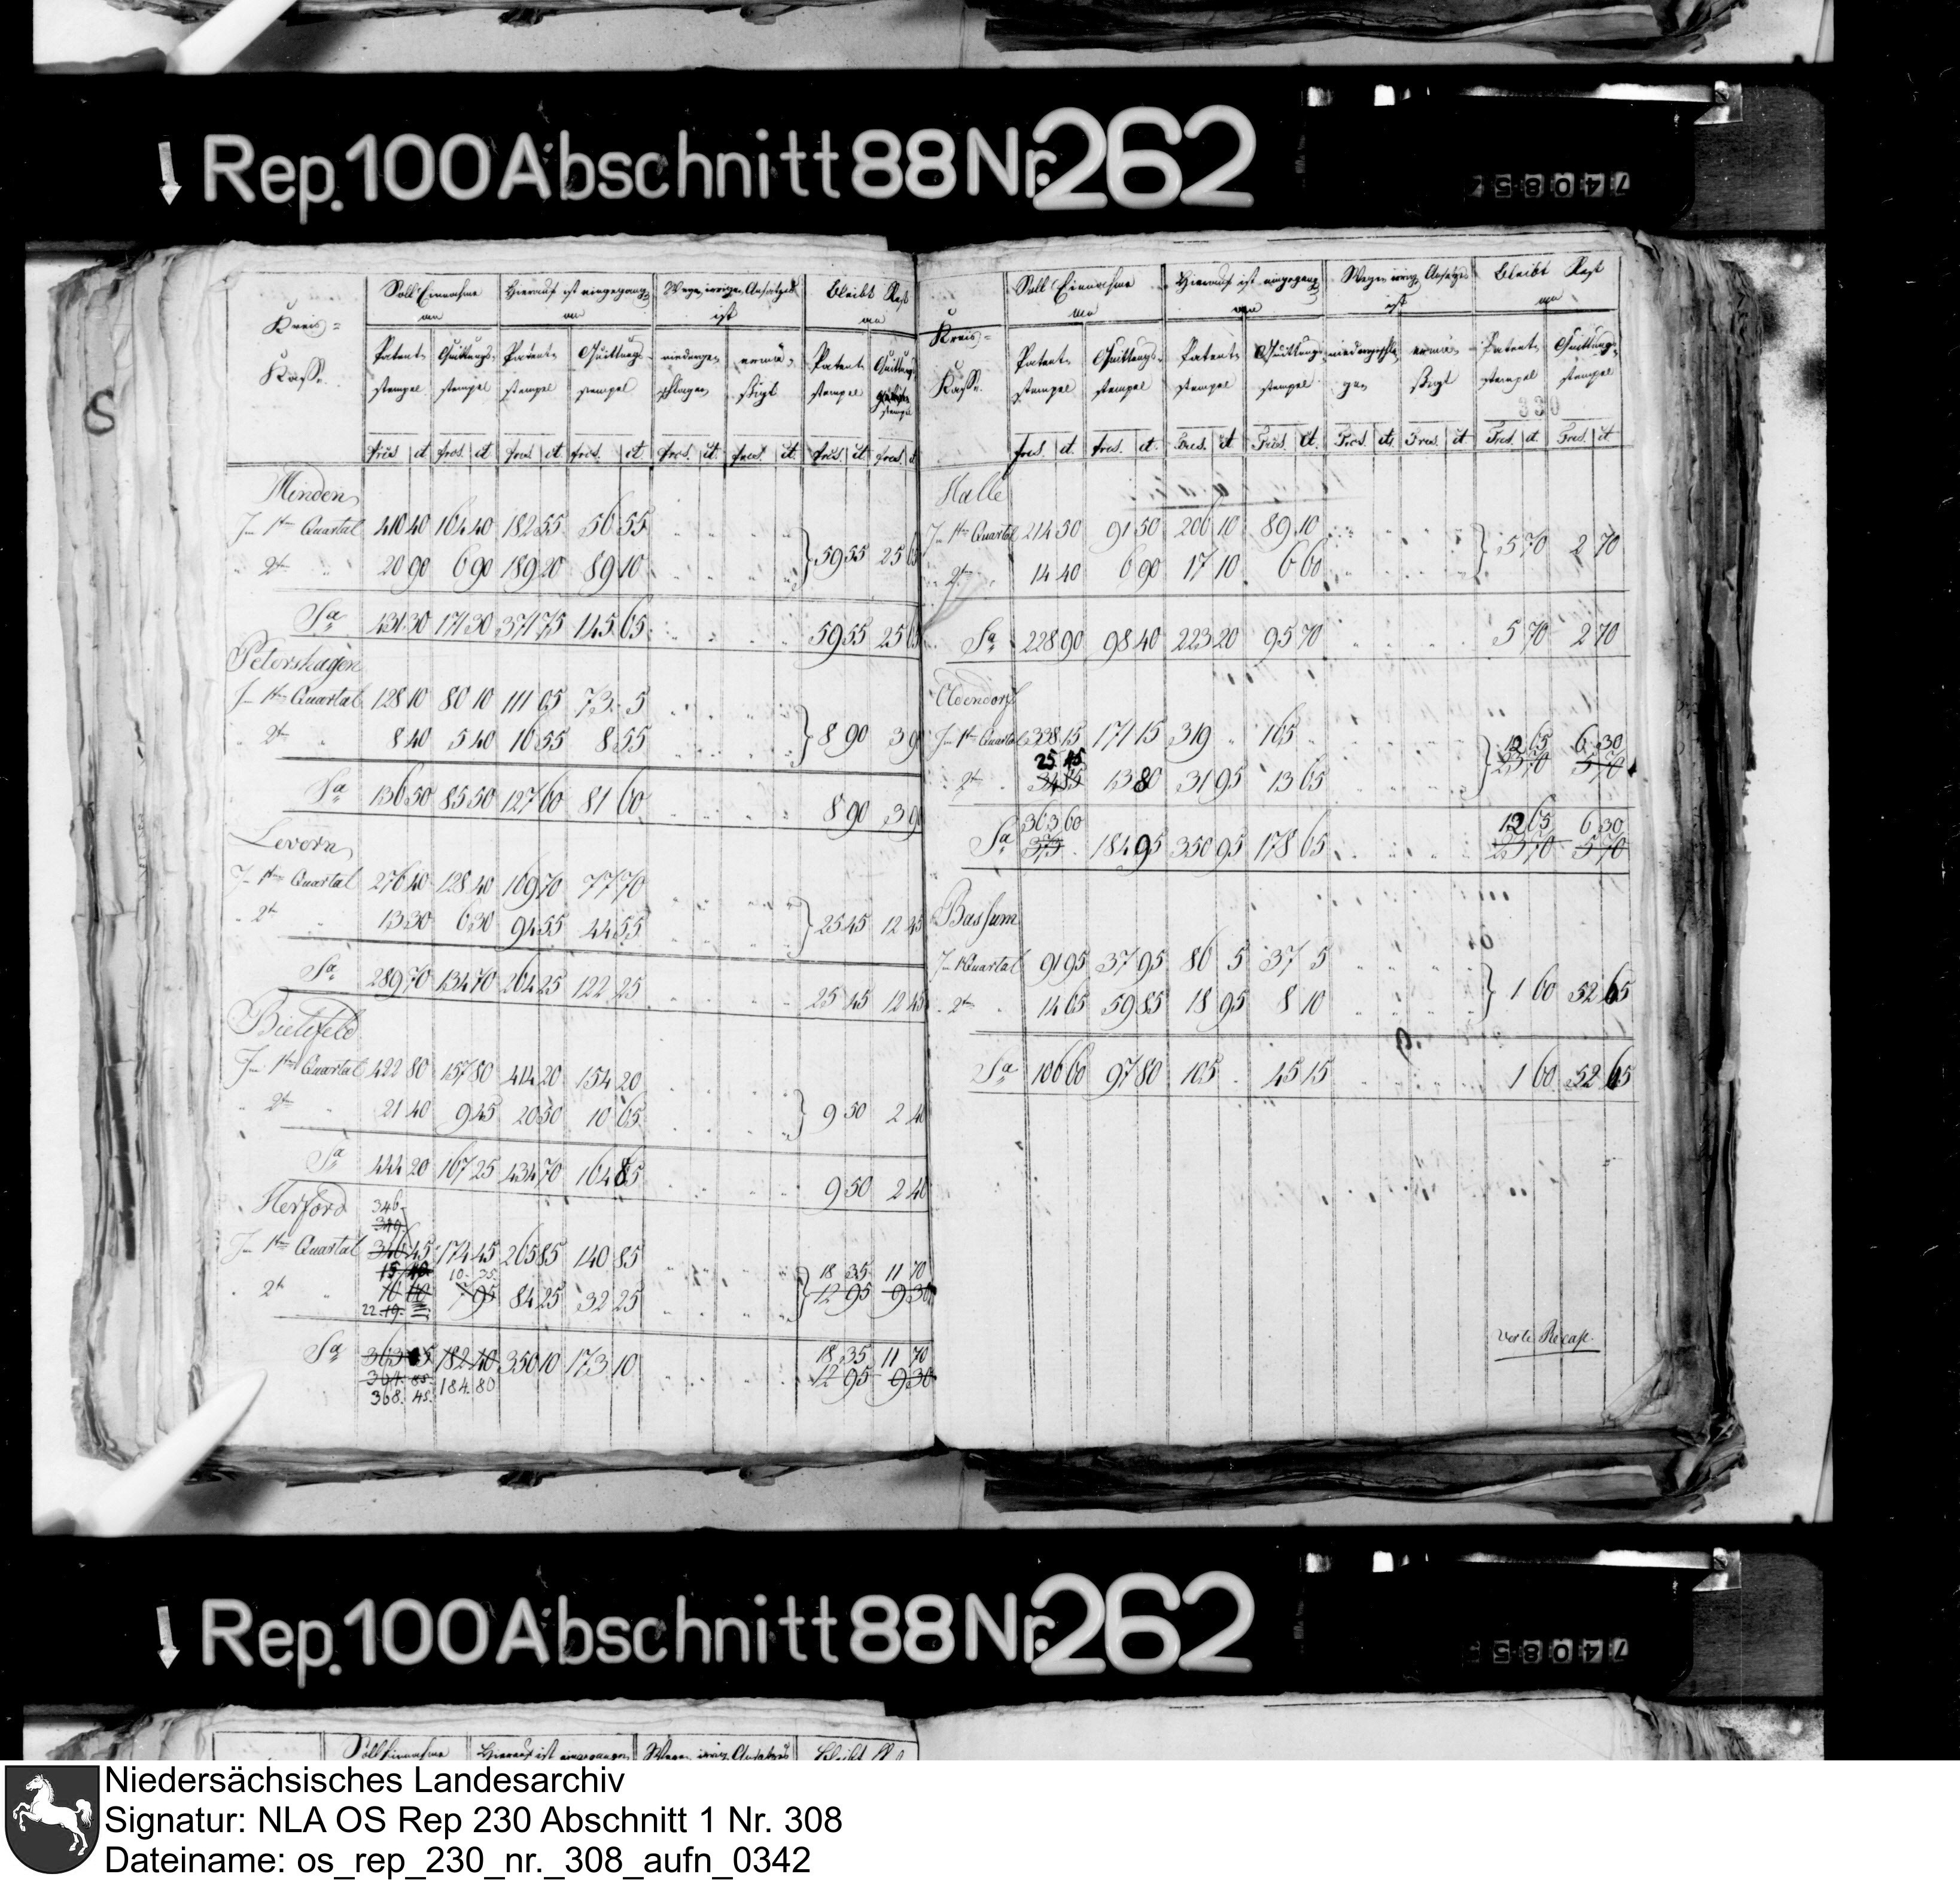 Rep. 100 Abschnitt 88 Nr. 262
74085
Kreis= Kasse. | Soll Einnahme an | Hierauf ist eingegangen an | Wegen irrigen Ansatzes ist | Bleibt Rest an
Patent stempel | Quittungs stempel | Patent stempel | Quittungs stempel | niederge schlagen | ermä ßigt | Patent stempel | Quittungs stempel
frcs. ct. frcs. ct. frcs. ct. frcs. ct. frcs. ct. frcs. ct. frcs. ct. frcs. ct.
Minden
1tn Quartal 410 40 164 40 182 55 56 55
2t " 20 90 6 90 189 20 89 10 } 59 55 25 65
Sa 431 30 171 30 371 75 145 65 59 55 25 65
Petershagen
1tn Quartal 128 10 80 10 111 05 73 5
2t " 8 40 5 40 16 55 8 55 } 8 90 3 90
Sa 136 50 85 50 127 60 81 60 8 90 3 90
Levern
1tn Quartal 276 40 128 40 169 70 77 70
2t " 13 30 6 30 94 55 44 55 } 25 45 12 45
Sa 289 70 134 70 264 25 122 25 25 45 12 45
Bielefeld
1tn Quartal 422 80 157 80 414 20 154 20
2t " 21 40 9 45 20 50 10 65 } 9 50 2 40
Sa 444 20 167 25 434 70 164 85 9 50 2 40
Herford 346
1tn Quartal 346 45 174 45 265 85 140 85
10 35 18 35 11 70
2t " 7 95 84 25 32 25 } 12 95 9 30
22
Sa 363 182 40 350 10 173 10 18 35 11 70
12 95 9 30
368 45 184 80
Kreis= Kasse. | Soll Einnahme an | Hierauf ist eingegangen an | Wegen irrig. Ansatzes ist | Bleibt Rest an
Patent stempel | Quittungs stempel | Patent stempel | Quittungs stempel | niedergeschla gen | ermä ßigt | Patent stempel | Quittungs stempel
330
frcs. ct. frcs. ct. frcs. ct. frcs. ct. frcs. ct. frcs. ct. frcs. ct. frcs. ct.
Halle
1tn Quartal 214 50 91 50 206 10 89 10
2t " 14 40 6 90 17 10 6 60 } 5 70 2 70
Sa 228 90 98 40 223 20 95 70 5 70 2 70
Oldendorf
1tn Quartal 338 15 171 15 319 " 165 "
25 45 12 65 6 30
2t " 34 85 13 80 31 95 13 65 } 23 70 5 70
363 60 12 65 6 30
Sa 373 184 95 350 95 178 65 23 70 5 70
Bassum
1 Quartal 91 95 37 95 86 5 37 5
2t " 14 65 59 85 18 95 8 10 } 1 60 52 65
Sa 106 60 97 80 105 " 45 15 1 60 52 65
Recap.
Rep. 100 Abschnitt 88 Nr. 262
74085
Soll Einnahme | Hierauf ist eingegangen | Wegen irrig. Ansatzes | Bleibt
Niedersächsisches Landesarchiv
Signatur: NLA OS Rep 230 Abschnitt 1 Nr. 308
Dateiname: os_rep_230_nr._308_aufn_0342